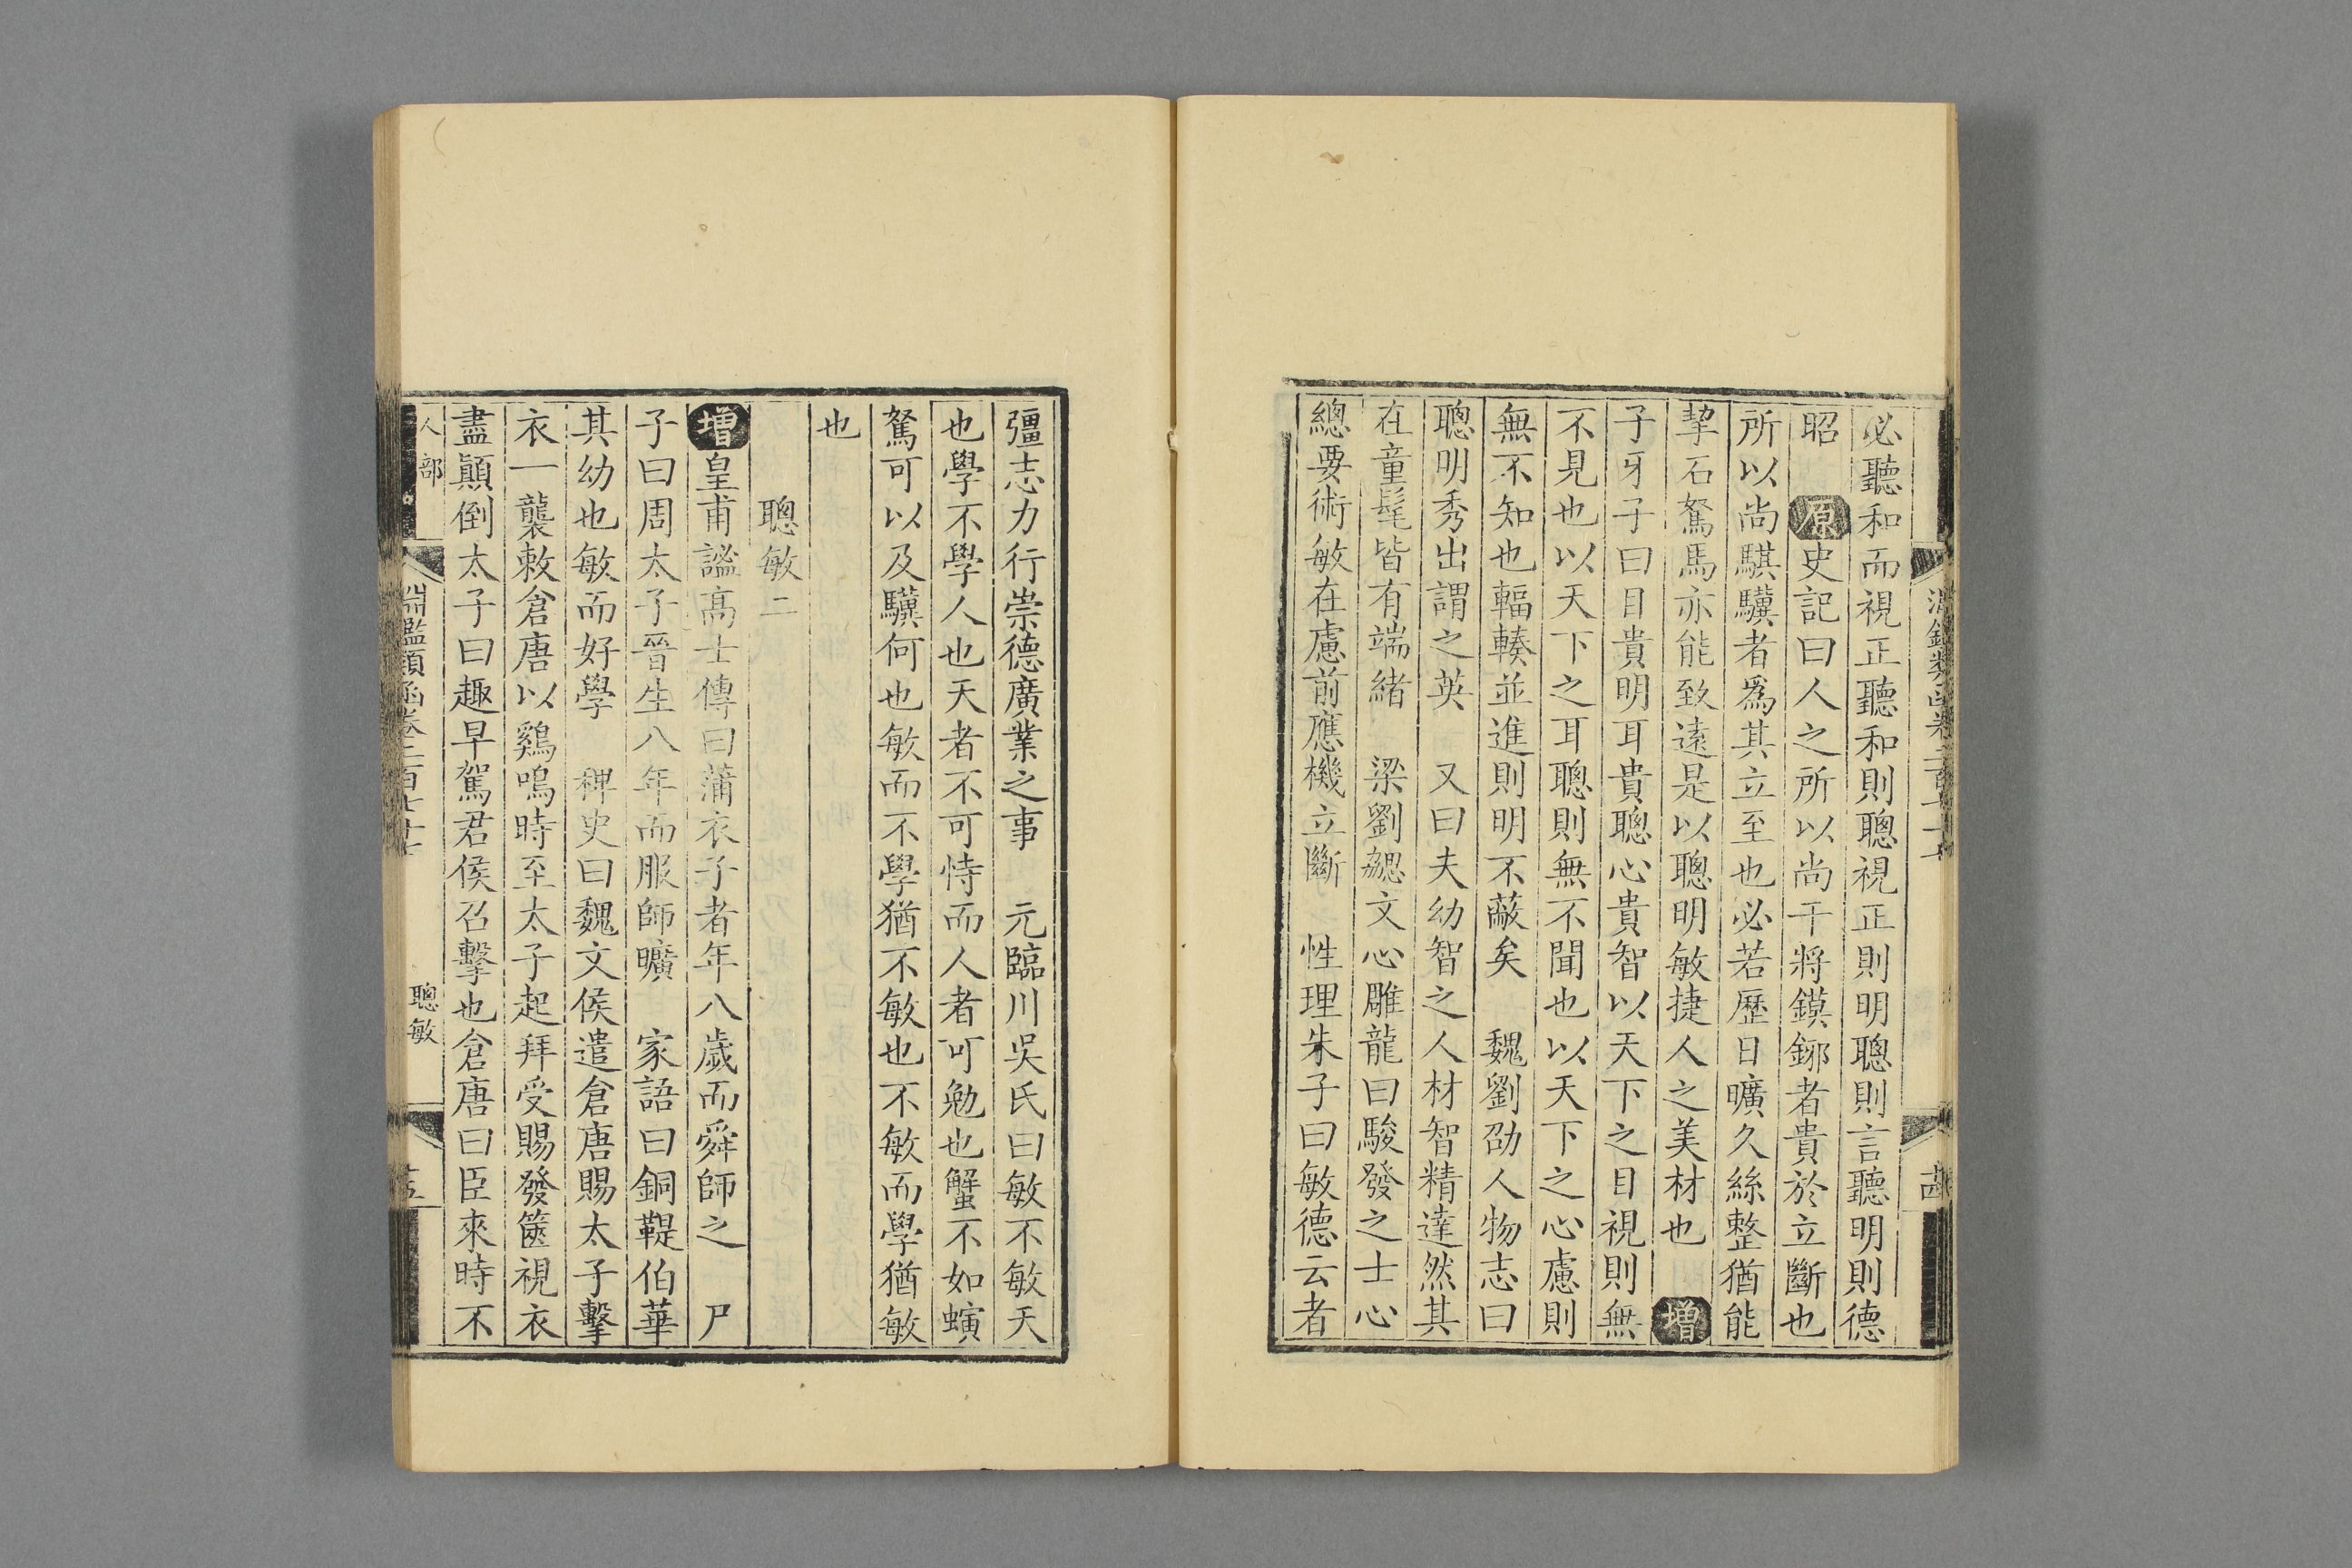 必聽和而視正聽和則聰視正則明聰則言聽明則德
昭　原史記曰人之所以尚干將鏌鋣者貴於立斷也
所以尚騏驥者爲其立至也必若歷日曠久絲整猶能
挈石駑馬亦能致遠是以聰明敏捷人之美材也　增
子牙子曰目貴明耳貴聰心貴智以天下之目視則無
不見也以天下之耳聰則無不聞也以天下之心慮則
無不知也輻輳並進則明不蔽矣　魏劉劭人物志曰
聰明秀出謂之英　又曰夫幼智之人材智精達然其
在童髦皆有端緒　梁劉勰文心雕龍曰駿發之士心
總要術敏在慮前應機立斷　性理朱子曰敏德云者
彊志力行崇德廣業之事　元臨川吳氏曰敏不敏天
也學不學人也天者不可恃而人者可勉也蟹不如螾
駑可以及驥何也敏而不學猶不敏也不敏而學猶敏
也
聰敏二
增皇甫謐高士傳曰蒲衣子者年八歲而舜師之　尸
子曰周太子晉生八年而服師曠　家語曰銅鞮伯華
其幼也敏而好學　稗史曰魏文侯遣倉唐賜太子擊
衣一襲敕倉唐以鷄鳴時至太子起拜受賜發篋視衣
盡顛倒太子曰趣早駕君侯召擊也倉唐曰臣來時不
人部
淵鑑類函卷二百七十七
聰敏